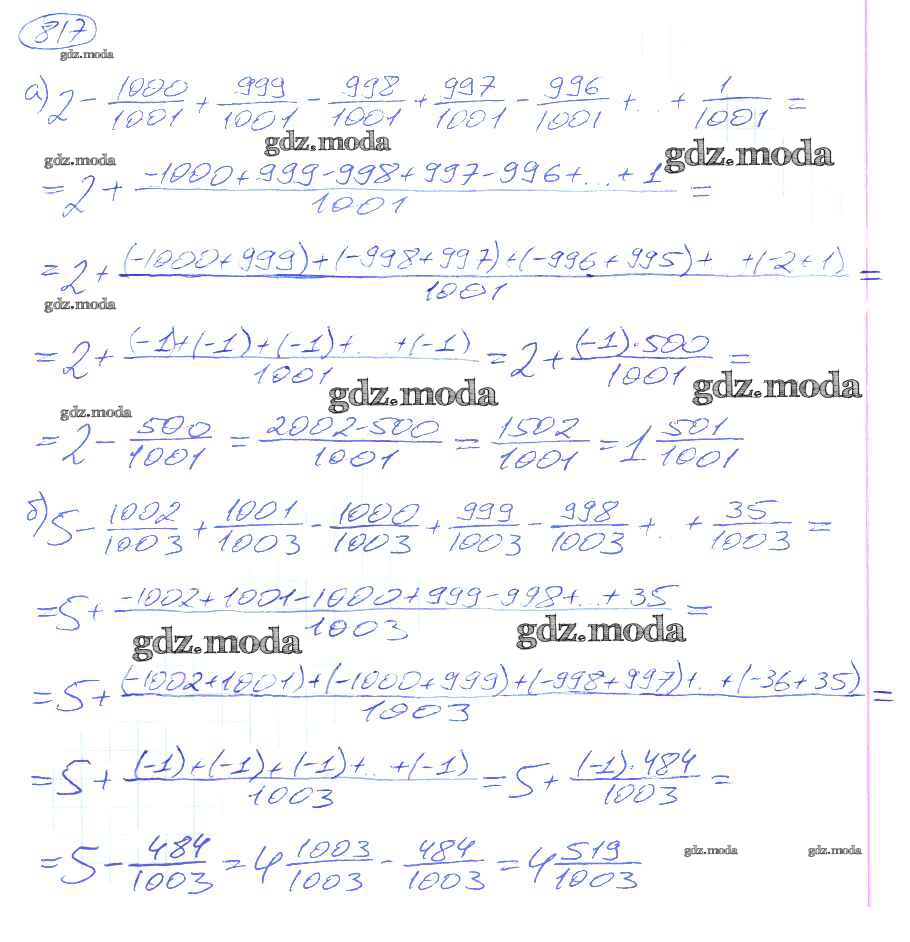 817
gdz.moda
а) 2 - 1000/1001 + 999/1001 - 998/1001 + 997/1001 - 996/1001 + .. + 1/1001 =
gdz.moda gdz.moda gdz.moda
= 2 + (-1000+999-998+997-996+..+1)/1001 =
= 2 + ((-1000+999)+(-998+997)+(-996+995)+ +(-2+1))/1001 =
gdz.moda
= 2 + ((-1)+(-1)+(-1)+.. +(-1))/1001 = 2 + ((-1)·500)/1001 =
gdz.moda gdz.moda
gdz.moda
= 2 - 500/1001 = (2002-500)/1001 = 1502/1001 = 1 501/1001
б) 5 - 1002/1003 + 1001/1003 - 1000/1003 + 999/1003 - 998/1003 + .. + 35/1003 =
= 5 + (-1002+1001-1000+999-998+..+35)/1003 =
gdz.moda gdz.moda
= 5 + ((-1002+1001)+(-1000+999)+(-998+997)+.. +(-36+35))/1003 =
= 5 + ((-1)+(-1)+(-1)+.. +(-1))/1003 = 5 + ((-1)·484)/1003 =
= 5 - 484/1003 = 4 1003/1003 - 484/1003 = 4 519/1003
gdz.moda gdz.moda